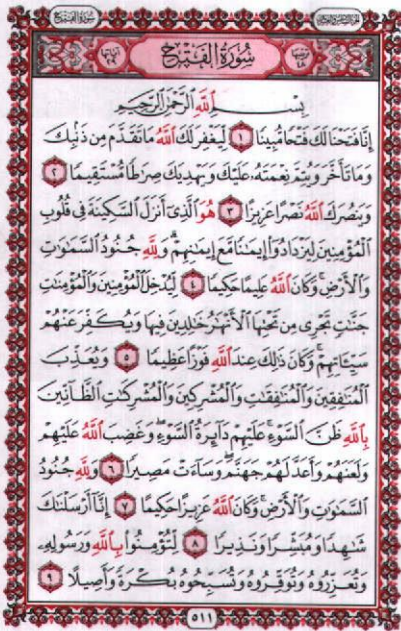 سُورَةُ الفَتْحِ
سُورَةُ الفَتْحِ
بِسْمِ ٱللَّهِ ٱلرَّحْمَٰنِ ٱلرَّحِيمِ
إِنَّا فَتَحْنَا لَكَ فَتْحًا مُّبِينًا ١ لِّيَغْفِرَ لَكَ ٱللَّهُ مَا تَقَدَّمَ مِن ذَنۢبِكَ
وَمَا تَأَخَّرَ وَيُتِمَّ نِعْمَتَهُۥ عَلَيْكَ وَيَهْدِيَكَ صِرَٰطًا مُّسْتَقِيمًا ٢
وَيَنصُرَكَ ٱللَّهُ نَصْرًا عَزِيزًا ٣ هُوَ ٱلَّذِىٓ أَنزَلَ ٱلسَّكِينَةَ فِى قُلُوبِ
ٱلْمُؤْمِنِينَ لِيَزْدَادُوٓا۟ إِيمَٰنًا مَّعَ إِيمَٰنِهِمْ ۗ وَلِلَّهِ جُنُودُ ٱلسَّمَٰوَٰتِ
وَٱلْأَرْضِ ۚ وَكَانَ ٱللَّهُ عَلِيمًا حَكِيمًا ٤ لِّيُدْخِلَ ٱلْمُؤْمِنِينَ وَٱلْمُؤْمِنَٰتِ
جَنَّٰتٍ تَجْرِى مِن تَحْتِهَا ٱلْأَنْهَٰرُ خَٰلِدِينَ فِيهَا وَيُكَفِّرَ عَنْهُمْ
سَيِّـَٔاتِهِمْ ۚ وَكَانَ ذَٰلِكَ عِندَ ٱللَّهِ فَوْزًا عَظِيمًا ٥ وَيُعَذِّبَ
ٱلْمُنَٰفِقِينَ وَٱلْمُنَٰفِقَٰتِ وَٱلْمُشْرِكِينَ وَٱلْمُشْرِكَٰتِ ٱلظَّآنِّينَ
بِٱللَّهِ ظَنَّ ٱلسَّوْءِ ۚ عَلَيْهِمْ دَآئِرَةُ ٱلسَّوْءِ ۖ وَغَضِبَ ٱللَّهُ عَلَيْهِمْ
وَلَعَنَهُمْ وَأَعَدَّ لَهُمْ جَهَنَّمَ ۖ وَسَآءَتْ مَصِيرًا ٦ وَلِلَّهِ جُنُودُ
ٱلسَّمَٰوَٰتِ وَٱلْأَرْضِ ۚ وَكَانَ ٱللَّهُ عَزِيزًا حَكِيمًا ٧ إِنَّآ أَرْسَلْنَٰكَ
شَٰهِدًا وَمُبَشِّرًا وَنَذِيرًا ٨ لِّتُؤْمِنُوا۟ بِٱللَّهِ وَرَسُولِهِۦ
وَتُعَزِّرُوهُ وَتُوَقِّرُوهُ وَتُسَبِّحُوهُ بُكْرَةً وَأَصِيلًا ٩
٥١١